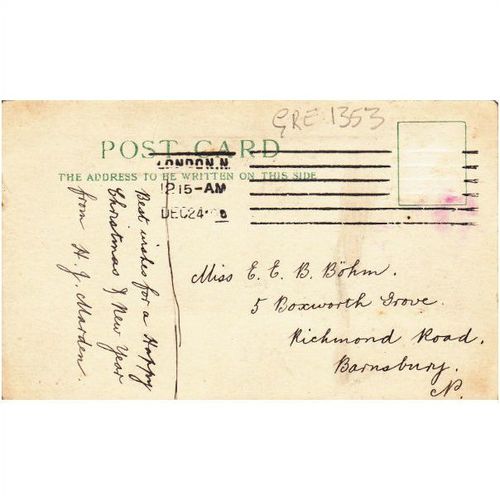 GRE.1353
POST CARD
THE ADDRESS TO BE WRITTEN ON THIS SIDE
LONDON.N.
12.15-AM
DEC 24
Best wishes for a Happy
Christmas & New Year
from H. J. Marden.
Miss E. E. B. Böhm.
5 Boxworth Grove.
Richmond Road,
Barnsbury.
N.